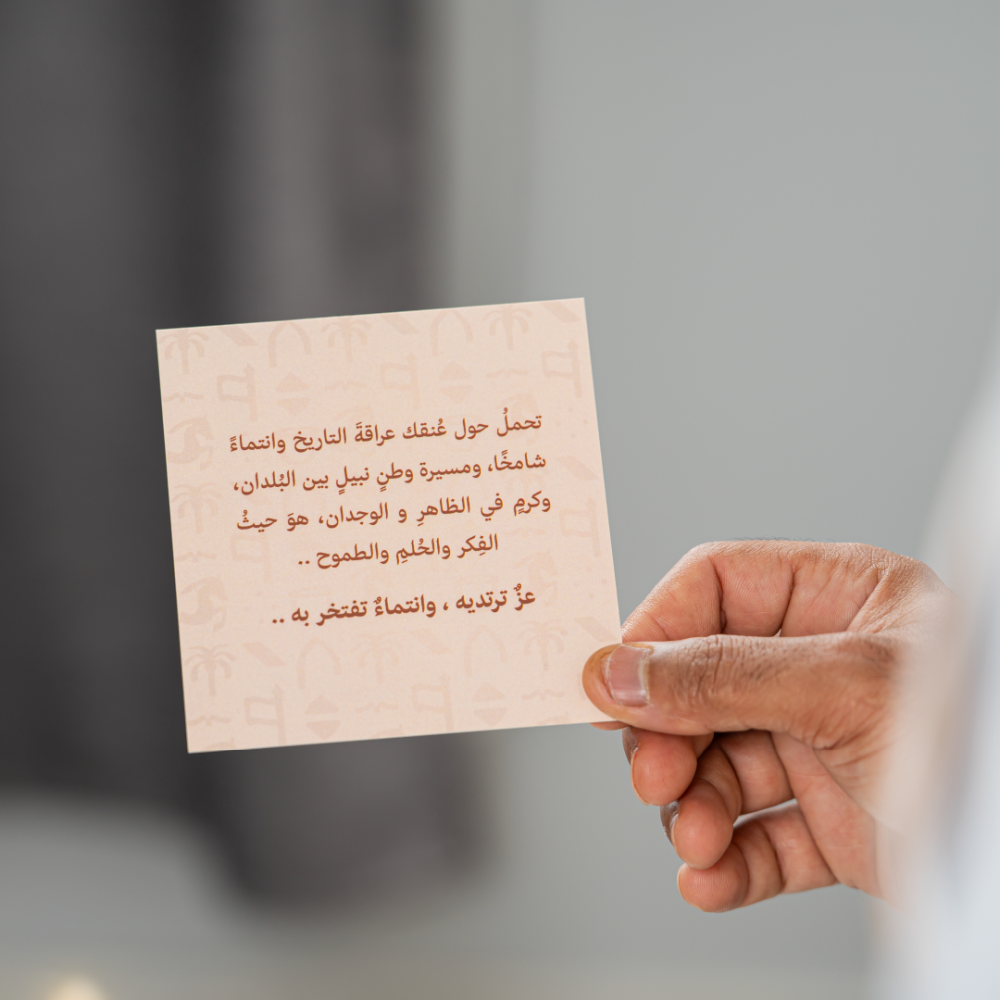 تحملُ حول عُنقك عراقةَ التاريخ وانتماءً
شامخًا، ومسيرة وطنٍ نبيلٍ بين البُلدان،
وكرمٍ في الظاهرِ و الوجدان، هوَ حيثُ
الفِكر والحُلمِ والطموح ..
عزٌ ترتديه ، وانتماءٌ تفتخر به ..